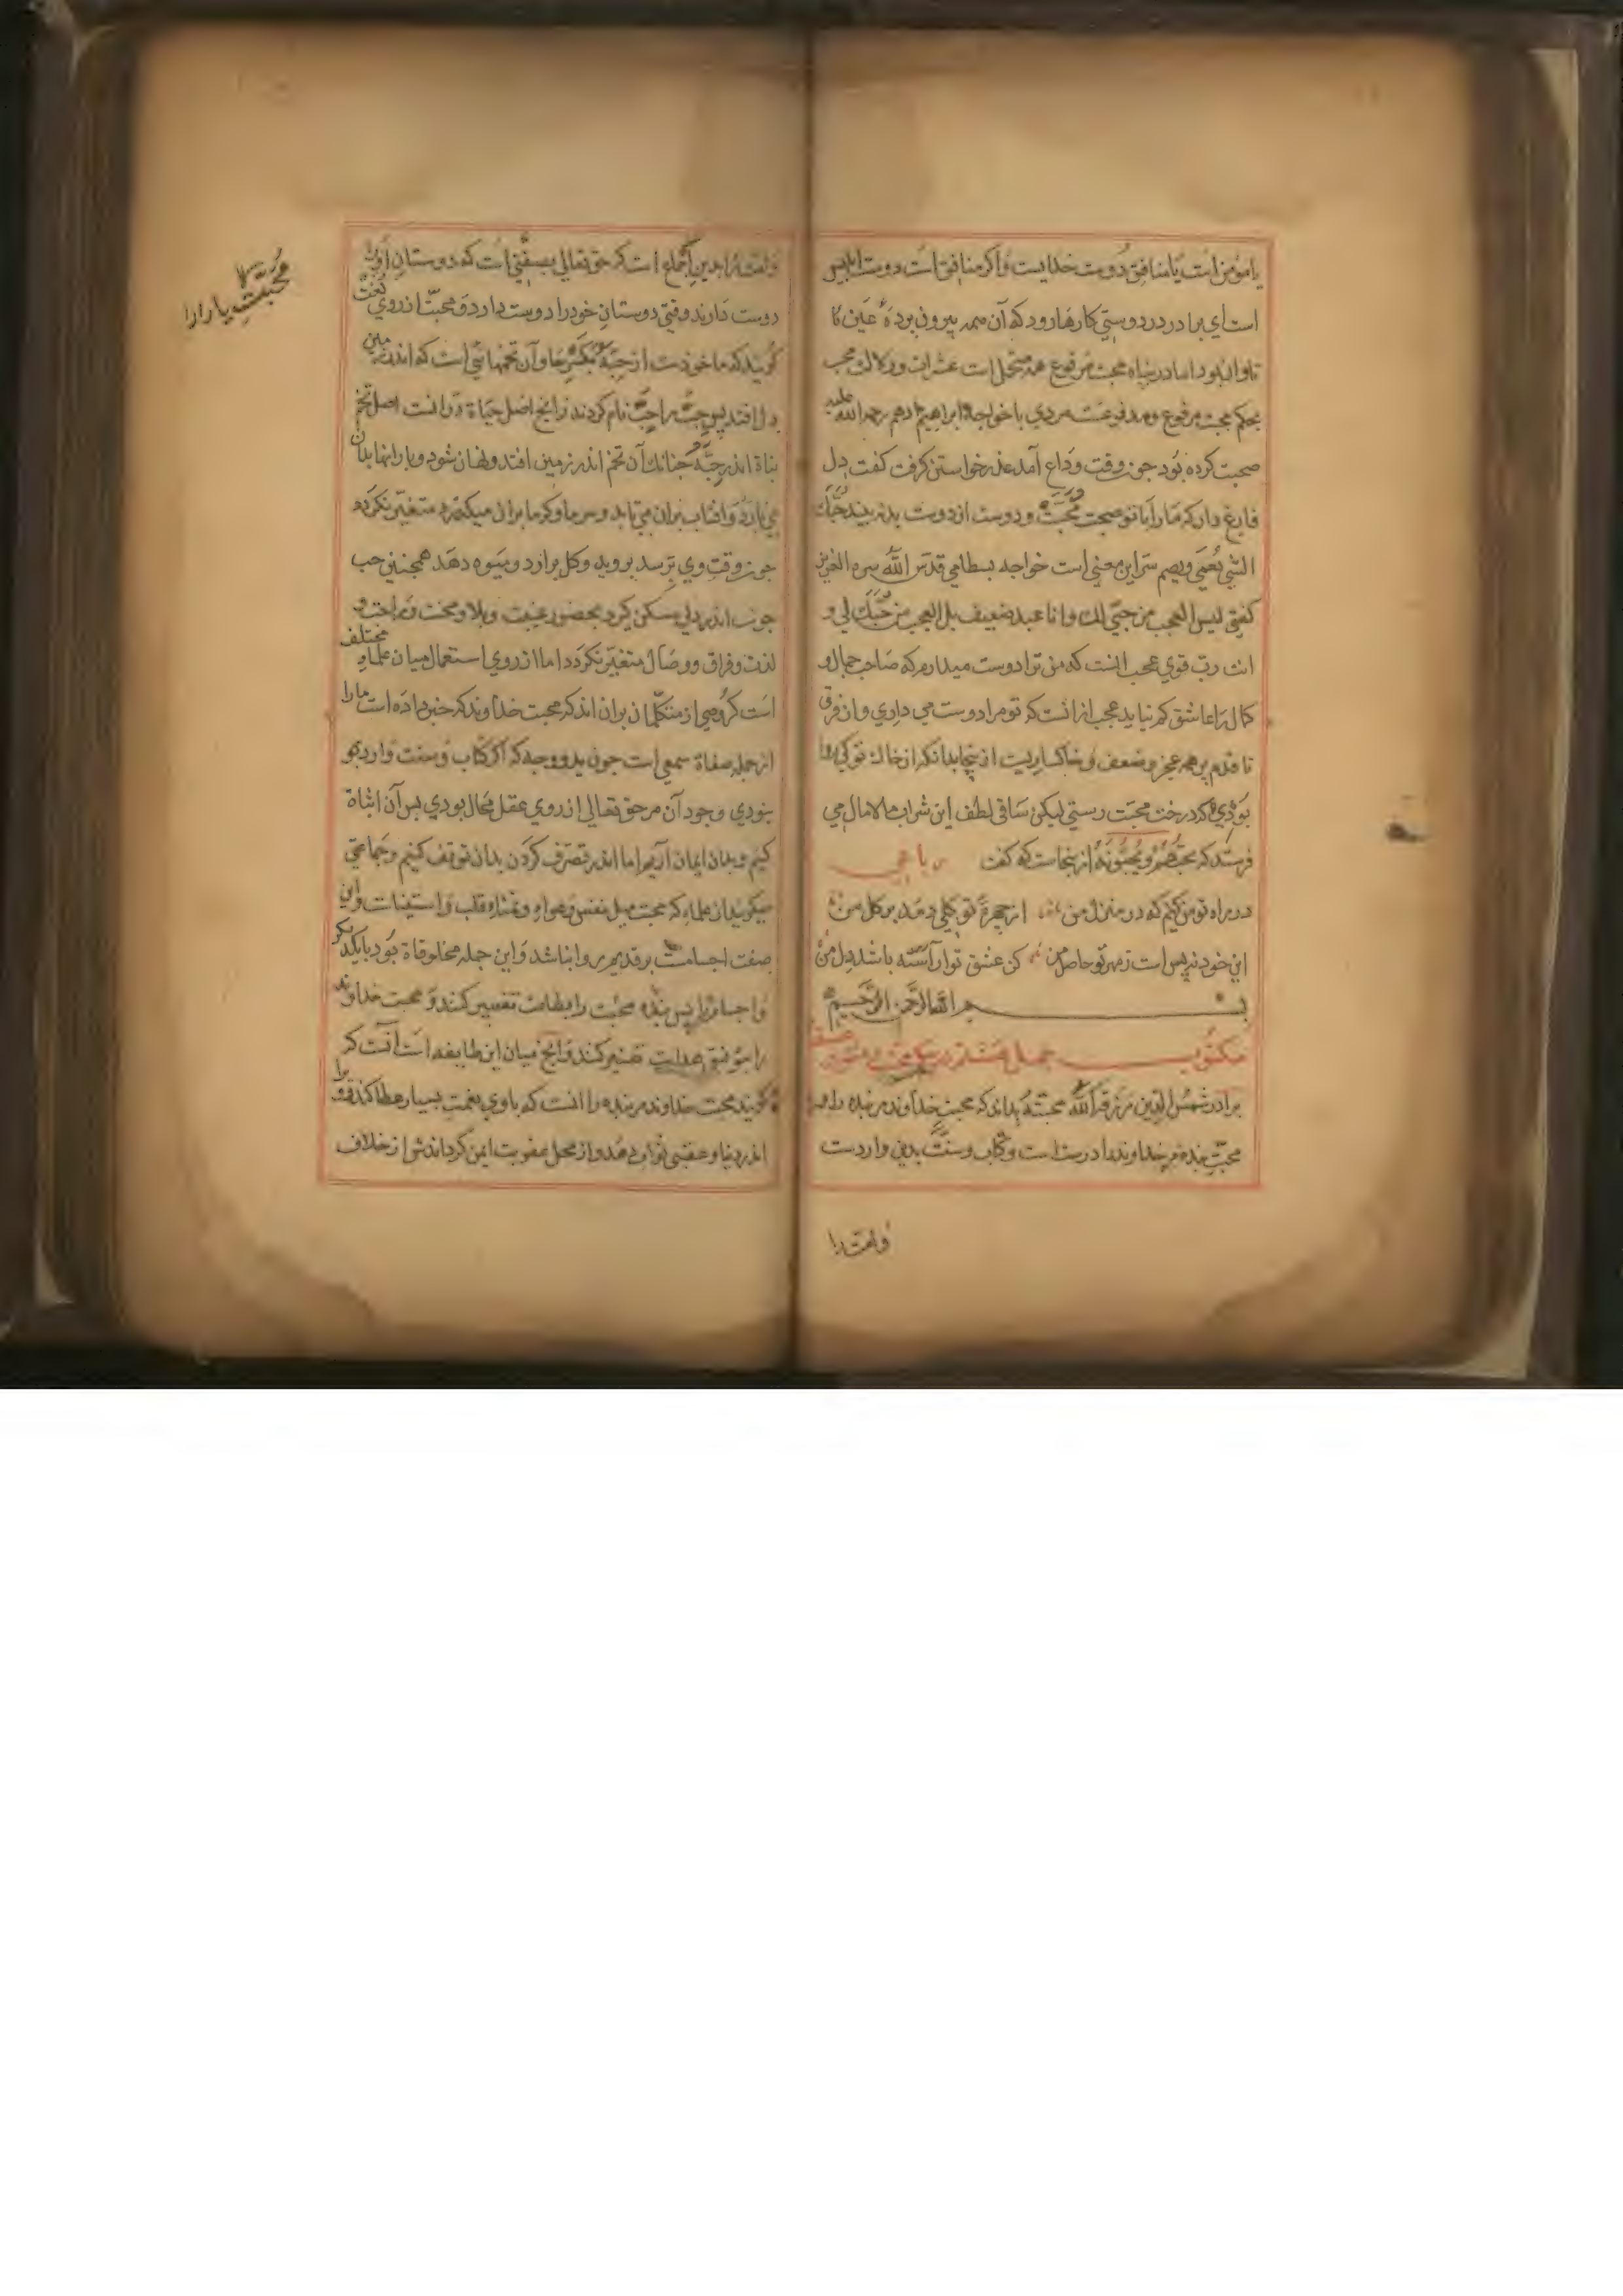 یا مومن است یا منافق دوست خدایست و اگر منافق است دوست ابلیس
است ای برادر در دوستی کارها رود که آن همه بیرون بوده عین
تاوان بود اما در پناه محبت مرفوع همه متحمل است عثرات و زلات محب
بحکم محبت مرفوع و مدفوعست مردی با خواجه ابراهیم ادهم رحمه الله علیه
صحبت کرده بود چون وقت وداع آمد عذر خواستن گرفت گفت دل
فارغ دار که ما را با تو صحبت محبت و دوست از دوست بد نه بیند حبک
الشی یعمی ویصم سر این معنی است خواجه بسطامی قدس الله سره العزیز
گفتی لیس العجب من حبی لک وانا عبد ضعیف بل العجب من حبک لی و
انت رب قوی عجب انست که من ترا دوست میدارم که صاحب جمال و
کمال را عاشق کم نیاید عجب از انست که تو مرا دوست می داری و از فرق
تا قدم بر همه عجز و ضعف و خاکساریست از ینجا بدانکه از خاک تو کی روا
بودی که درخت محبت رستی لیکن ساقی لطف این شراب مالامال می
فرستد که یحبهم و یحبونه از ینجاست که گفت رباعی
در راه تو من کیم که در منزل من از چهره تو گلی دمد بر گل من
این خود نه بس است ز مهر تو حاصل من کز عشق تو آراسته باشد دل من
بسم الله الرحمن الرحیم
مکتوب چهل
برادر شمس الدین رزقه الله محبته بداند که محبت خداوند مر بنده را و
محبت بنده مر خداوند را درست است و کتاب و سنت بدین واردست
وامت را
وامت را بدین اجماع است که حق تعالی بصفتی است که دوستان او را
دوست دارند وقتی دوستان خود را دوست دارد و محبت از روی لغت
گویند که ماخوذست از حبه بکسر حا و آن تخمهائی است که اندر زمین
دل افتد پس حب را حب نام کردند زانچ اصل حیاة در انست اصل تخم
نباة اندر حبه چنانک آن تخم اندر زمین افتد و نهان شود و بارانها بدان
می بارد و افتاب بران می تابد و سرما و گرما بران میگذرد متغیر نگردد
چون وقت وی برسد بروید و گل برارد و میوه دهد همچنین حب
چون اندر دلی مسکن گیرد بحضور و غیبت و بلا و محنت و راحت و
لذت و فراق و وصال متغیر نگردد اما از روی استعمال میان علما مختلف
است گروهی از متکلمان بران اند که محبت خداوند که خبر داده است ما را
از جمله صفاة سمعی است چون ید و وجه که اگر کتاب و سنت وارد بو
نبودی وجود آن مر حق تعالی از روی عقل محال بودی پس آن اثباة
کنیم و بدان ایمان آریم اما اندر تصرف کردن بدان توقف کنیم و جماعتی
میگویند از علما که محبت میل نفس و هوا و تمناء قلب و استیناس و این
صفت اجسامست بر قدیم روا نباشد و این جمله مخلوقاة بود با یکدیگر
و اجسام را پس بنده محبت را بطاعت تفسیر کنند و محبت خداوند
را بتوفیق هدایت تفسیر کنند و آنچ میان این طایفه است آنست که
گویند محبت خداوند مر بنده را انست که با وی نعمت بسیار عطا کند و او را
اندر دنیا و عقبی ثواب دهد و از محل عقوبت ایمن گرداندش از خلاف
محبت یا را را